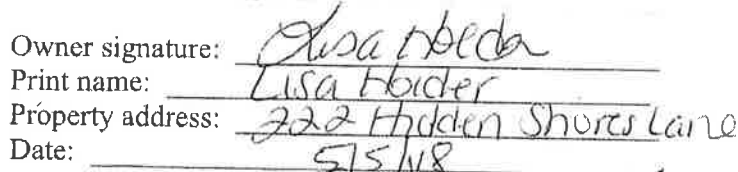 Owner signature: Lisa Holder
Print name: Lisa Holder
Property address: 222 Hidden Shores Lane
Date: 5/5/18